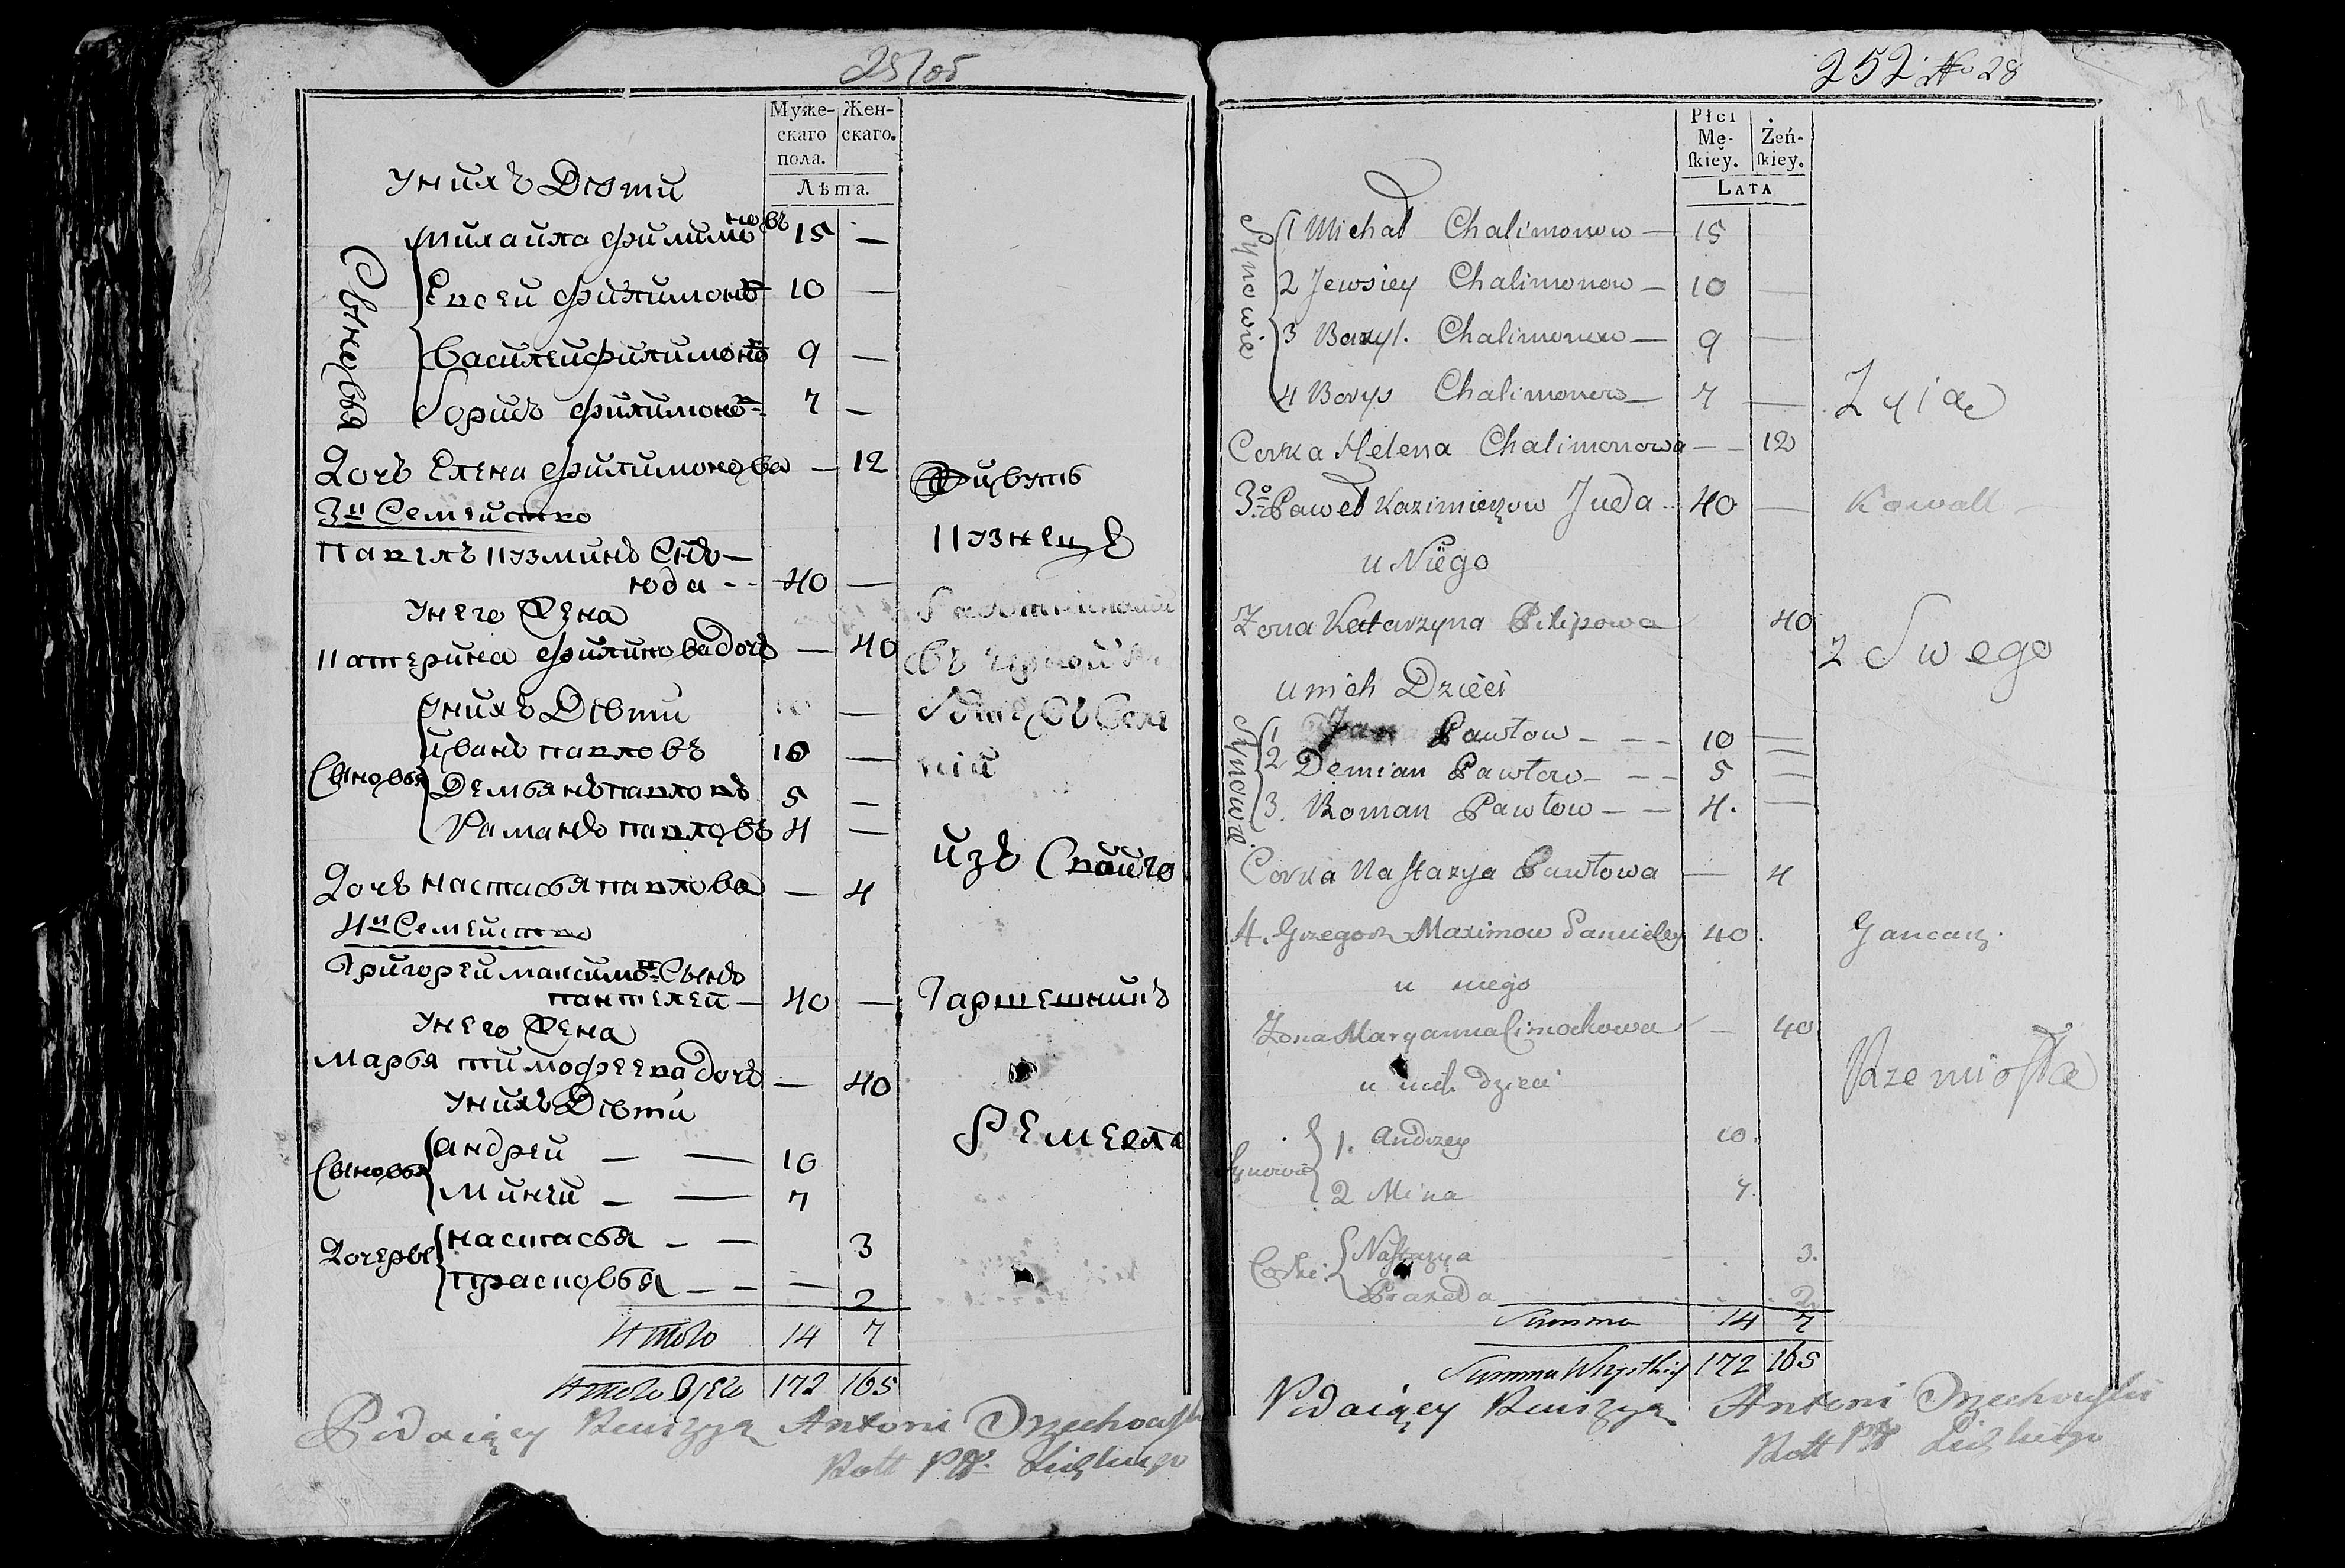 251об
Муже-
скаго
пола.
Жен-
скаго.
Лѣта.
У нихъ Дѣти
Сыновья
Михаила Филимоновъ 15 —
Евсей Филимоновъ 10 —
Василей Филимоновъ 9 —
Борисъ Филимоновъ 7 —
Дочь Елена Филимонова — 12
Живутъ
3й Семейство
Кузнецъ
Павелъ Кузминъ Снъ —
Юда - - 40 —
У Него Жена
Катерина Филипова дочь — 40
У нихъ Дѣти
Сыновья
Иванъ Павловъ 10 —
Демьянъ Павловъ 5 —
Раманъ Павловъ 4 —
изъ Своиго
Дочь Настасья Павлова — 4
4й Семейство
Григорей Максимовъ Сынъ
Пантелей — 40 — Гартешникъ
У Него Жена
Марья Тимофеева дочь — 40
У нихъ Дѣти
Ремесла
Сыновья
Андрей — — 10
Миней — — 7
Дочерье
Настасья — — 3
Прасковья — — — 2
Итого 14 7
Итого всего 172 165
Podaiący Rewizyą Antoni Orzechowski
Rott
252 No 28
Płci
Mę-
ſkiey.
Żeń-
ſkiey.
LATA
Synowie
1 Michał Chalimonow — 15
2 Jewsiey Chalimonow — 10 —
3 Bazyl. Chalimonow — 9 —
4 Borys Chalimonow — 7 —
Żyią
Corka Helena Chalimonowa — — 12
3o Paweł Kazimierzow Juda .. 40 — Kowall —
u Niego
Zona Katarzyna Pilipowa 40
z Swego
u nich Dzieci
Synowie
1 Jan Pawłow - - - 10 —
2 Demian Pawłow - - - 5 —
3. Roman Pawłow - - 4. —
Corka Nastazya Pawłowa — 4
4. Grzegorz Maximow Pancieley 40. Gancarz.
u niego
Zona Maryanna Cimochowa — 40
Rzemiosła
u nich dzieci
Synowie
1. Andrzey 10.
2 Mina 7.
Corki
Nastazya 3.
Praxeda 2
Summa 14 7
Summa Wszystkich 172 165
Podaiący Rewizyą Antoni Orzechowski
Rott